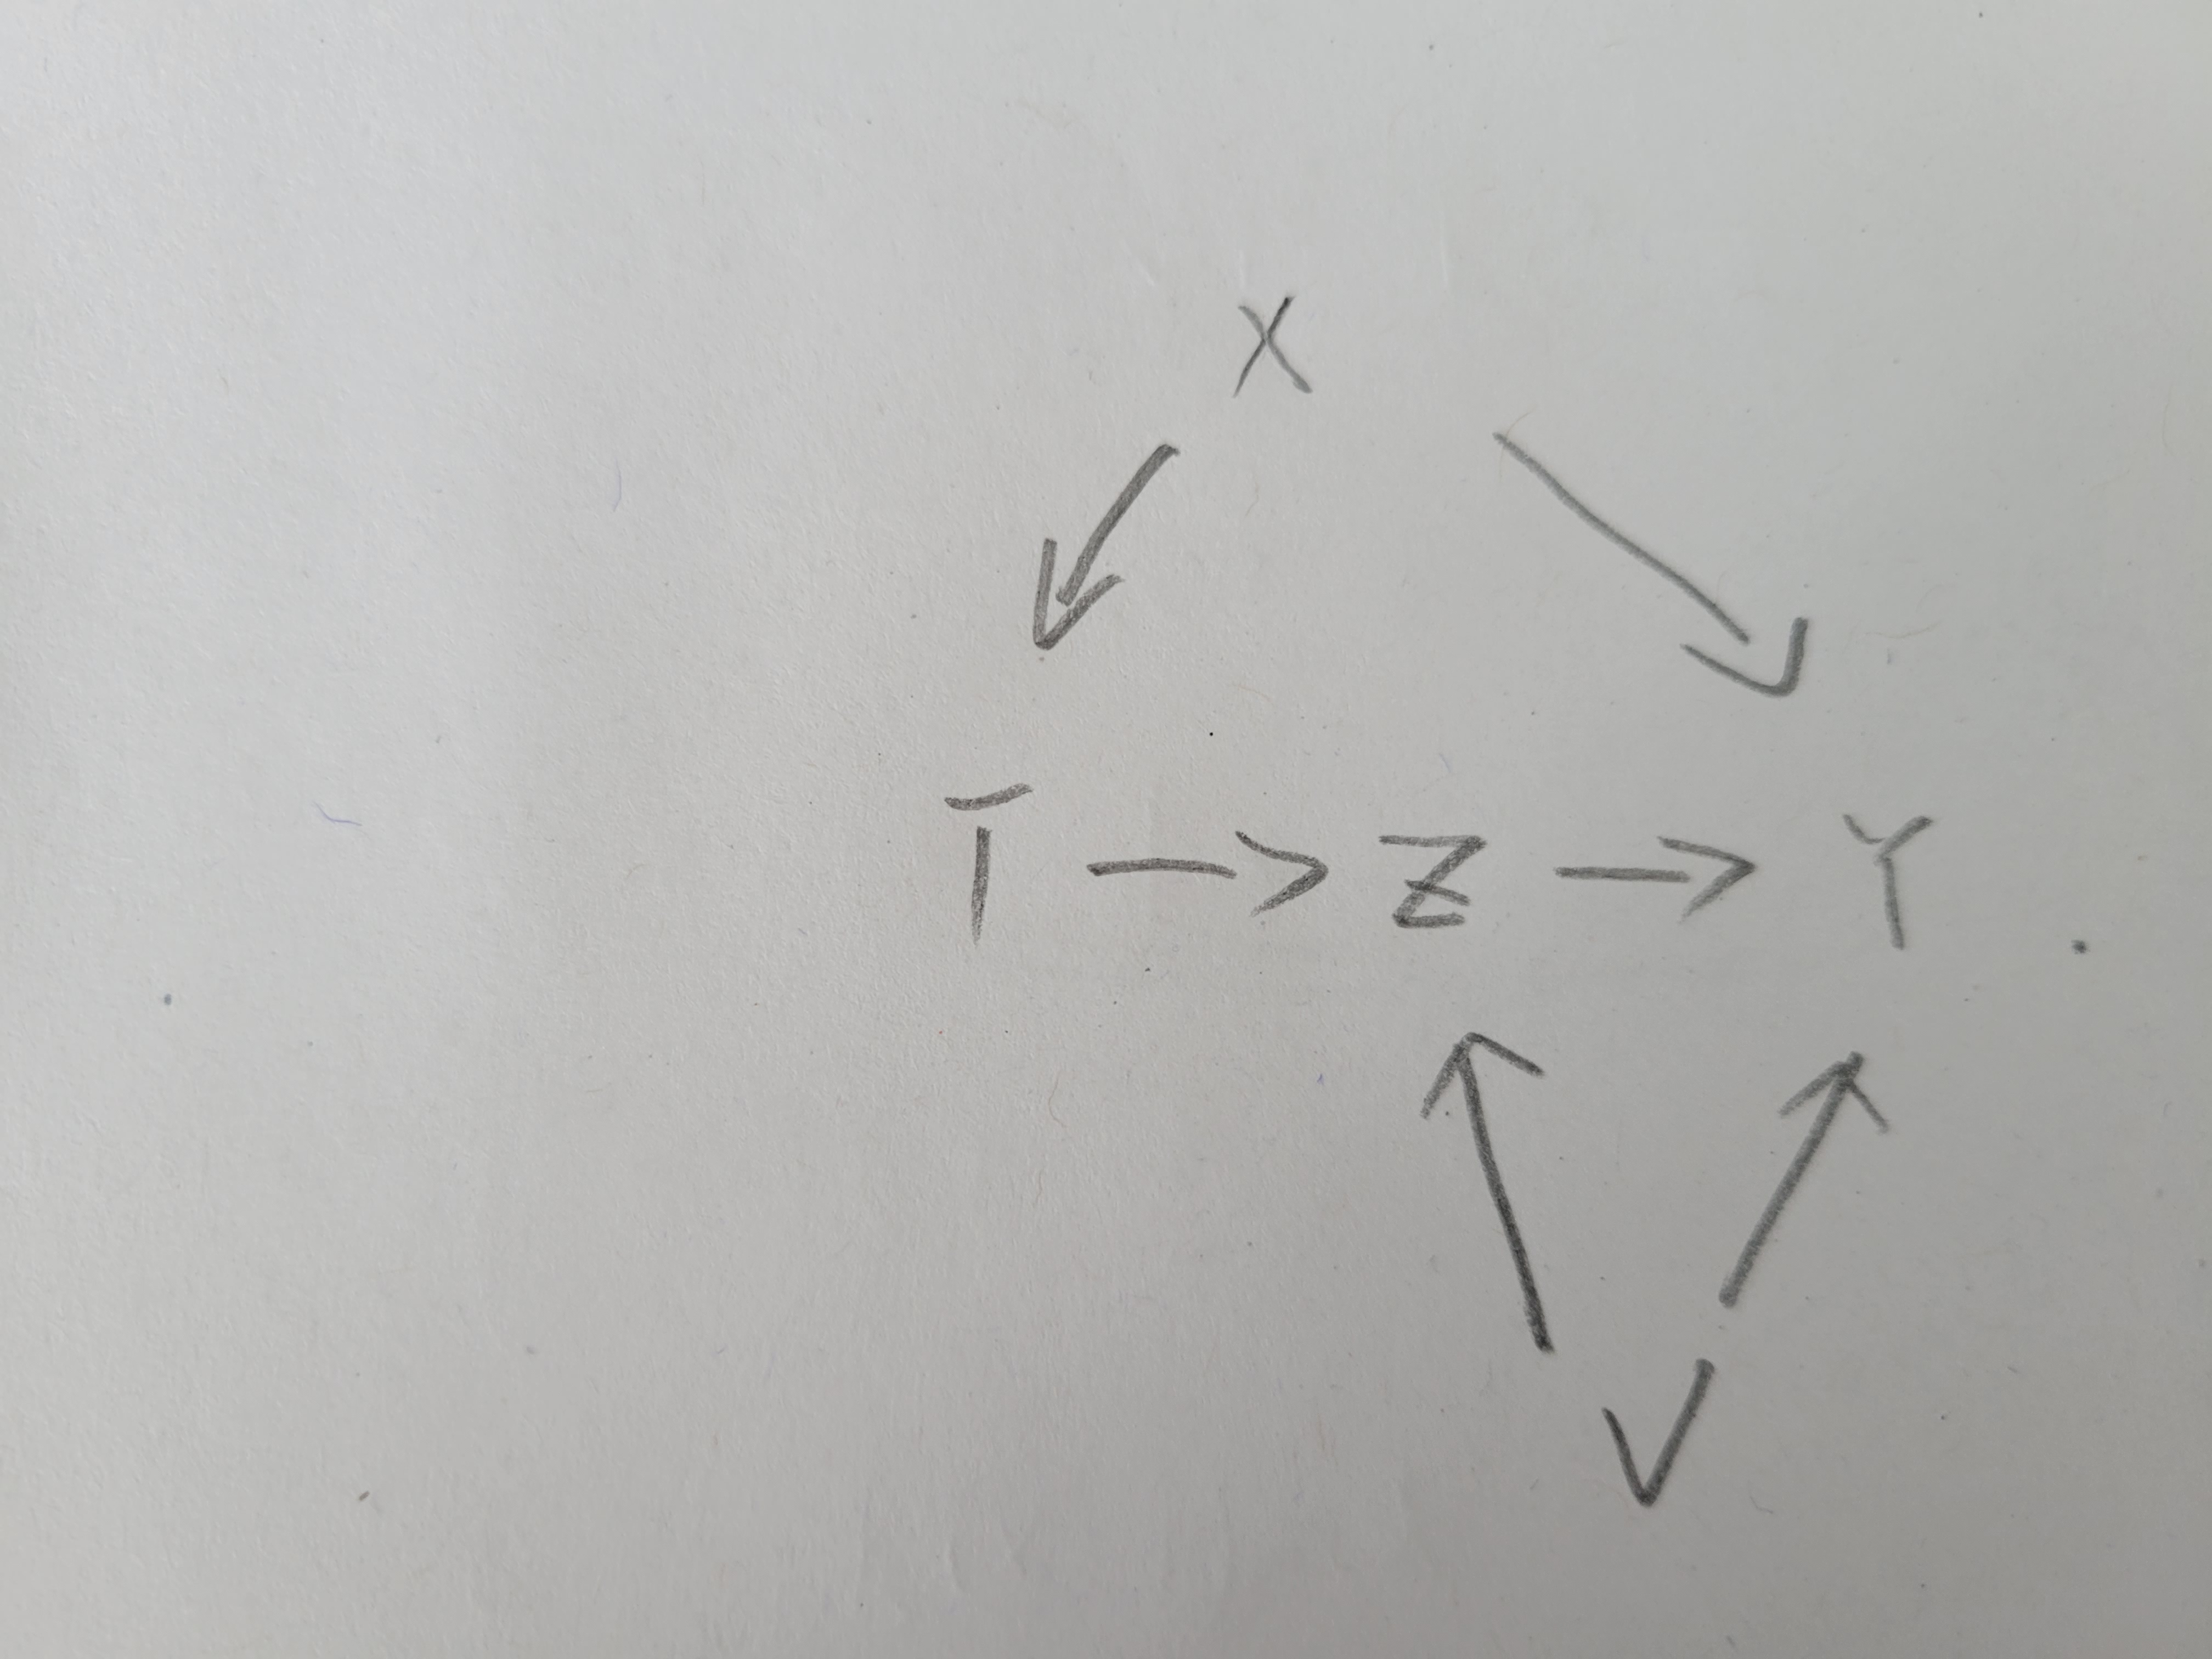 X
T → Z → Y
V